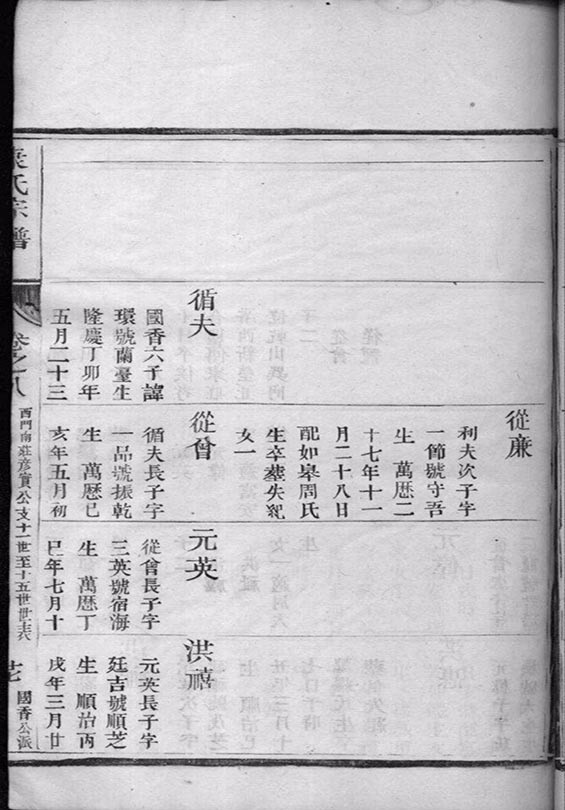 從廉
利夫次子字
一節號守吾
生 萬厯二
十七年十一
月二十八日
配如皋周氏
生卒塟失紀
女一
循夫
國香六子諱
環號蘭臺生
隆慶丁卯年
五月二十三
從會
循夫長子字
一品號振乾
生 萬厯已
亥年五月初
元英
從會長子字
三英號宿海
生 萬厯丁
巳年七月十
洪禧
元英長子字
廷吉號順芝
生 順治丙
戌年三月廿
袁氏宗譜
卷之八
西門南莊彦實公支十一世至十五世世表
國香公派